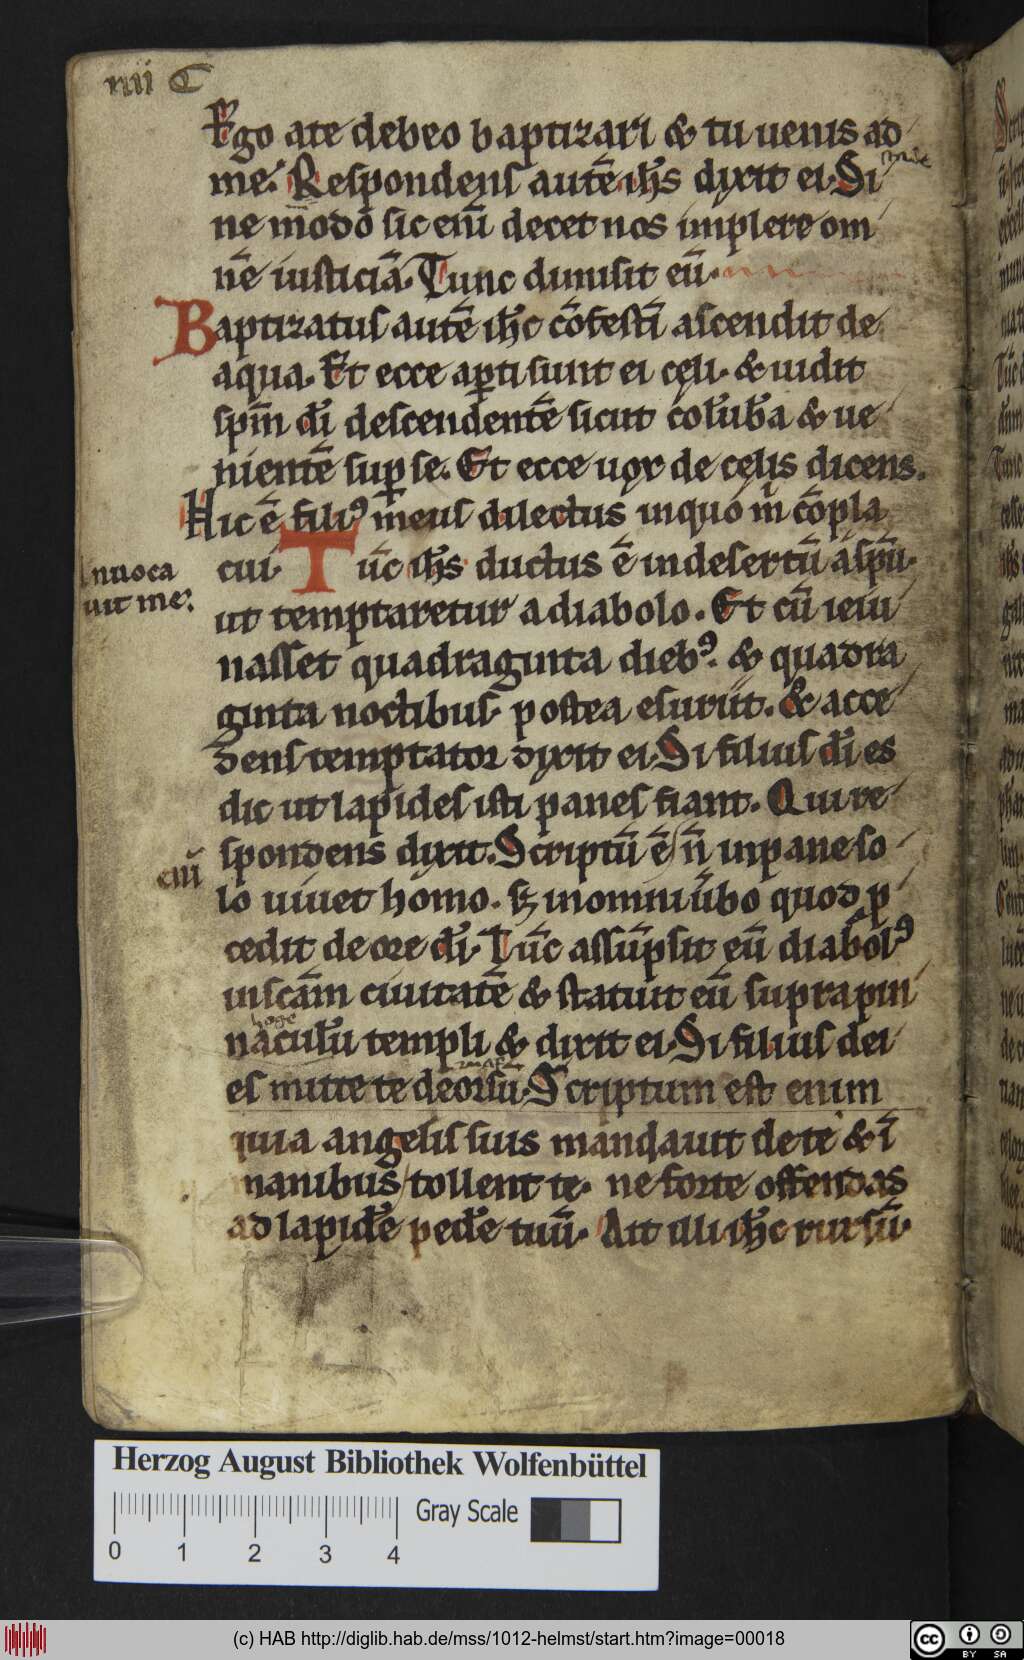 iiii C
Ego a te debeo baptizari & tu uenis ad
me. Respondens autē ih̄s dixit ei. Si
ne modo sic eni̅ decet nos implere om
nē iusticiā. Tunc dimisit eū.
Baptizatus autē ih̄c cōfestī ascendit de
aqua. Et ecce apti sunt ei cęli. & uidit
spm̄ dī descendentē sicut colūbā & ue
nientē sup se. Et ecce uox de cęlis dicens.
Hic ē filiꝰ meus dilectus in quo m cōpla
cui. Tūc ih̄s ductus ē in desertū a spū.
Inuoca
uit me.
ut temptaretur a diabolo. Et cū ieiu
nasset quadraginta diebꝰ. & quadra
ginta noctibus. postea esuriit. & acce
dens temptator dixit ei. Si filius dī es
dic ut lapides isti panes fiant. Qui re
spondens dixit. Scriptū ē n̄ in pane so
lo uiuet homo. sꝫ in omni ūbo quod p
cedit de ore dī. Tūc assūpsit eū diabolꝰ
in scām ciuitatē & statuit eū supra pin
naculū templi & dixit ei. Si filius dei
es mitte te deorsū. Scriptum est enim
quia angelis suis mandauit de te & ī
manibus tollent te. ne forte offendas
ad lapidē pedē tuū. Ait illi ih̄c rursū.
Herzog August Bibliothek Wolfenbüttel
Gray Scale
0 1 2 3 4
(c) HAB http://diglib.hab.de/mss/1012-helmst/start.htm?image=00018
cc BY SA